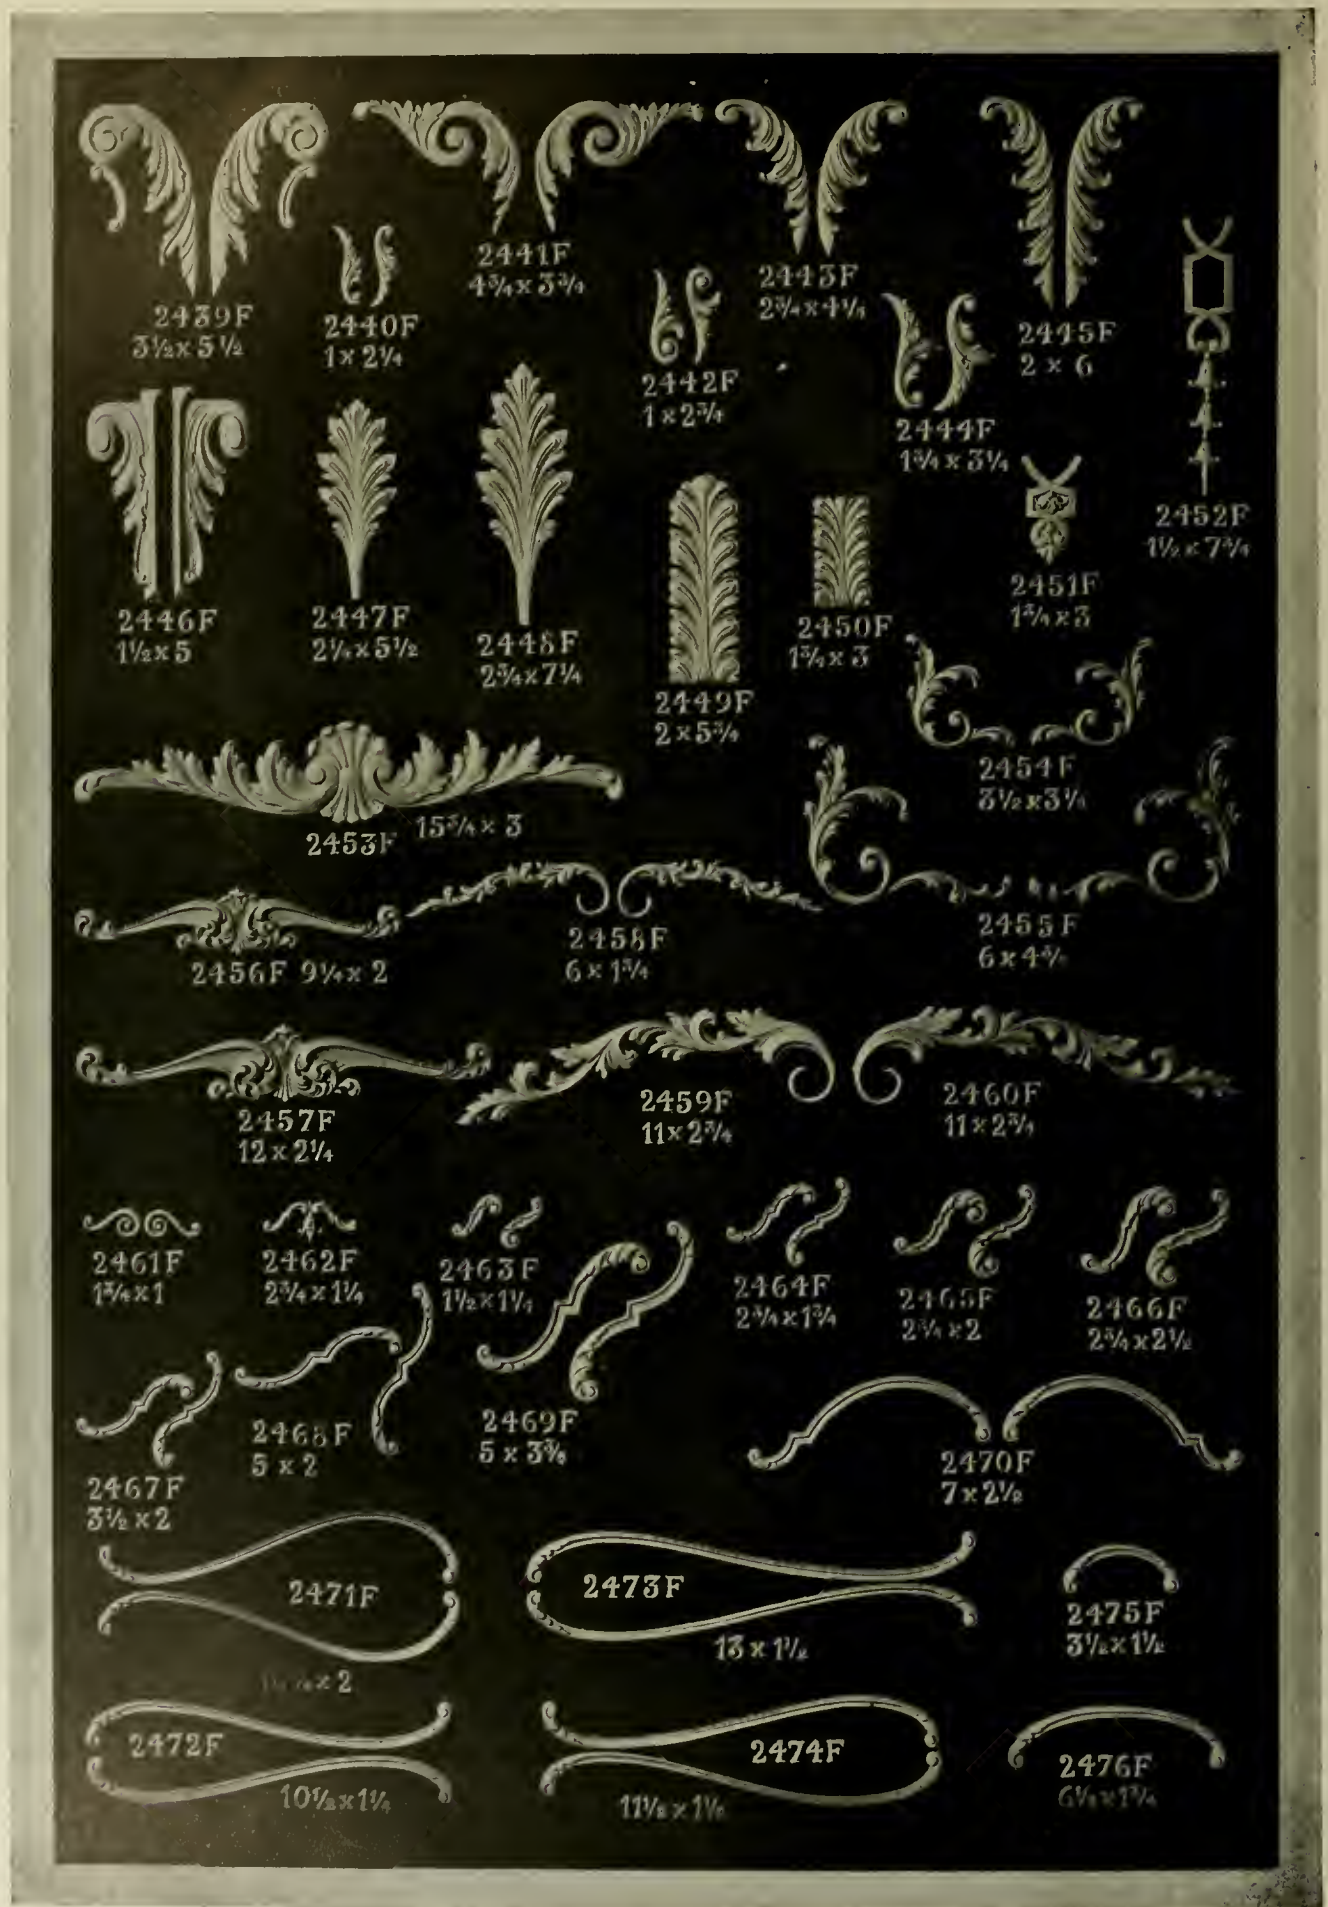 2439F
3½ x 5½
2440F
1 x 2¼
2441F
4¾ x 3¾
2442F
1 x 2¾
2443F
2¾ x 4¼
2444F
1¾ x 3¼
2445F
2 x 6
2446F
1½ x 5
2447F
2¼ x 5½
2448F
2¾ x 7¼
2449F
2 x 5¾
2450F
1¾ x 3
2451F
1¾ x 3
2452F
1½ x 7¾
2453F 15¾ x 3
2454F
3½ x 3¼
2455F
6 x
2456F 9¼ x 2
2458F
6 x 1¾
2457F
12 x 2¼
2459F
11 x 2¾
2460F
11 x 2¾
2461F
1¾ x 1
2462F
2¾ x 1¼
2463F
1½ x 1¼
2464F
2¾ x 1¾
2465F
2¾ x 2
2466F
2¾ x 2½
2467F
3½ x 2
2468F
5 x 2
2469F
5 x 3⅜
2470F
7 x 2½
2471F
x 2
2473F
13 x 1½
2475F
3½ x 1½
2472F
10½ x 1¼
2474F
11½ x
2476F
x 1¾